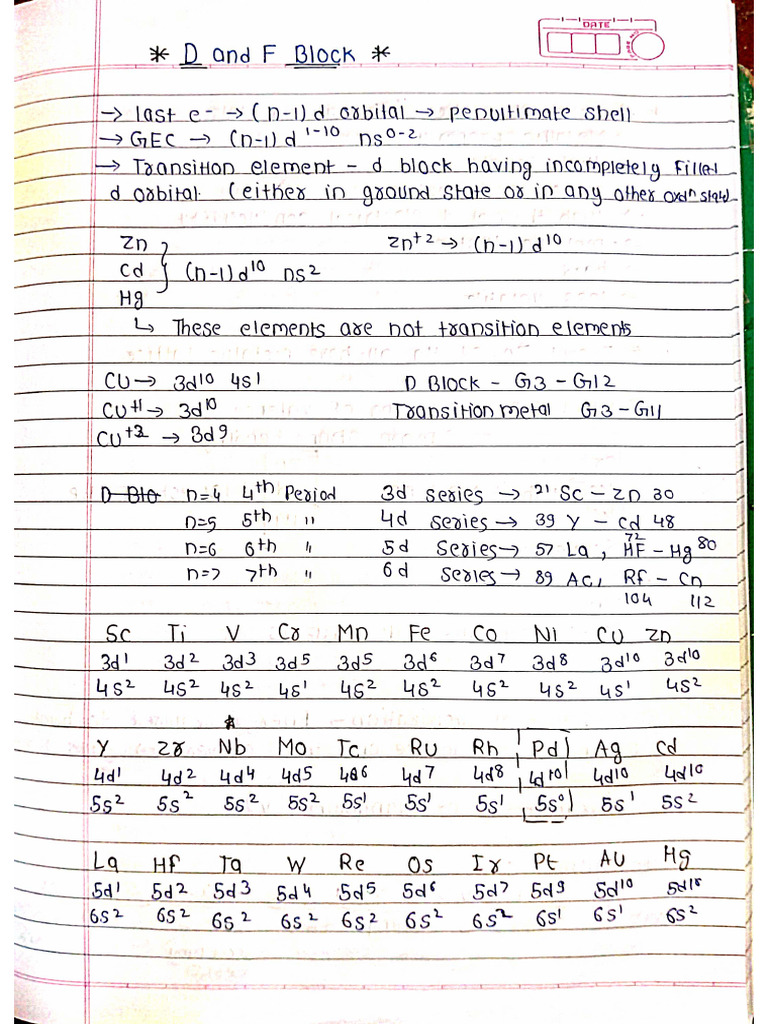 DATE
* D and F Block *
→ last e- → (n-1) d orbital → penultimate shell
→ GEC → (n-1) d 1-10 ns 0-2
→ Transition element - d block having incompletely filled
d orbital. (either in ground state or in any other oxdn state)
Zn Zn+2 → (n-1) d10
Cd } (n-1) d10 ns2
Hg
↳ These elements are not transition elements
CU → 3d10 4s1 D Block - G3 - G12
CU+1 → 3d10 Transition metal G3 - G11
CU+2 → 3d9
D Blo n=4 4th Period 3d series → 21 Sc - Zn 30
n=5 5th " 4d series → 39 Y - Cd 48
n=6 6th " 5d Series → 57 La, 72 HF - Hg 80
n=7 7th " 6d Series → 89 Ac, Rf - Cn
104 112
Sc Ti V Cr Mn Fe Co Ni CU Zn
3d1 3d2 3d3 3d5 3d5 3d6 3d7 3d8 3d10 3d10
4s2 4s2 4s2 4s1 4s2 4s2 4s2 4s2 4s1 4s2
*
Y Zr Nb Mo Tc RU Rh Pd Ag Cd
4d1 4d2 4d4 4d5 4d6 4d7 4d8 4d10 4d10 4d10
5s2 5s2 5s2 5s2 5s1 5s1 5s1 5s0 5s1 5s2
La Hf Ta W Re Os Ir Pt AU Hg
5d1 5d2 5d3 5d4 5d5 5d6 5d7 5d9 5d10 5d10
6s2 6s2 6s2 6s2 6s2 6s2 6s2 6s1 6s1 6s2